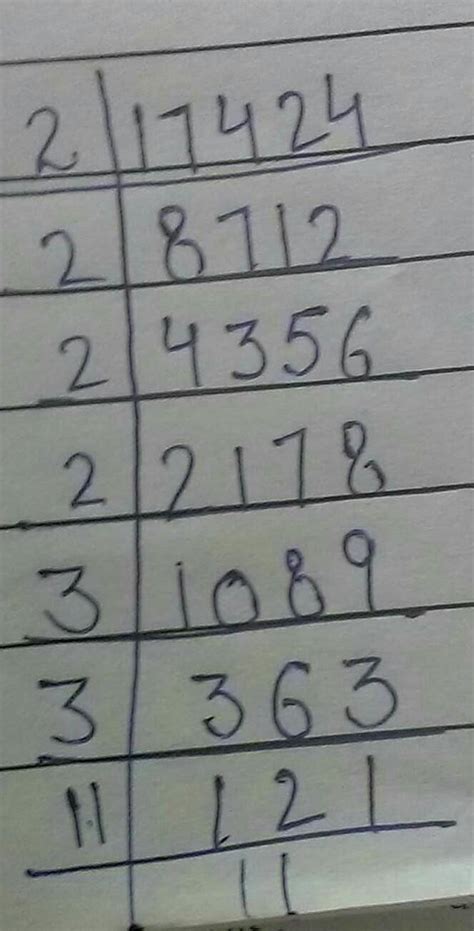 2 17424
2 8712
2 4356
2 2178
3 1089
3 363
11 121
11